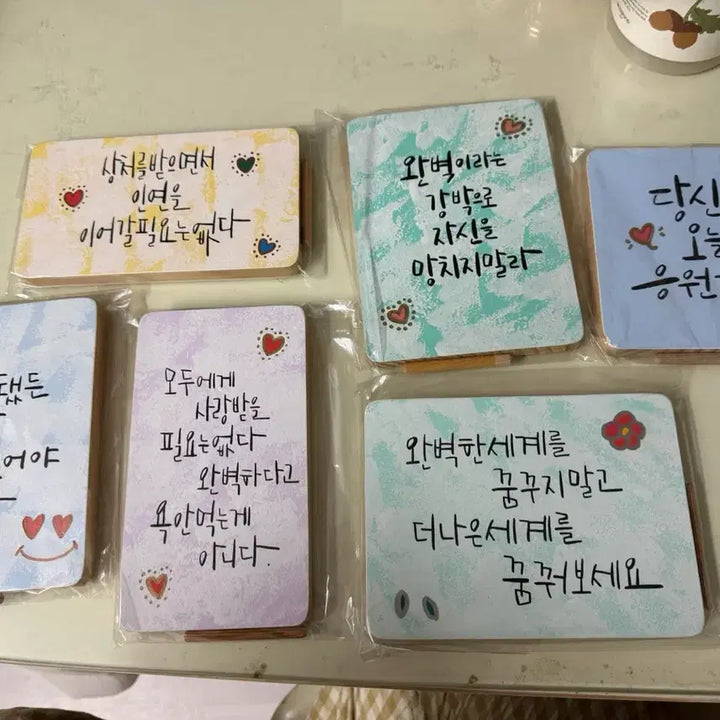 상처를받으면서
이연을
이어갈필요는없다
완벽이라는
강박으로
자신을
망치지말라
당신
오늘
응원
됐든
어야
모두에게
사랑받을
필요는없다
완벽하다고
욕안먹는게
아니다.
완벽한세계를
꿈꾸지말고
더나은세계를
꿈꿔보세요